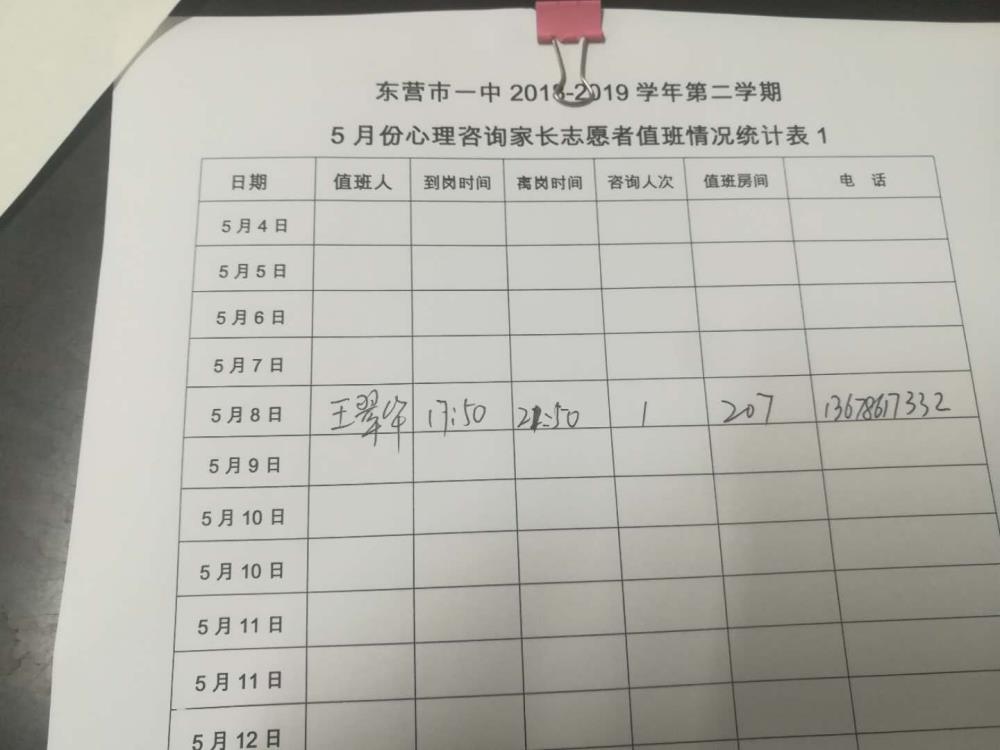 东营市一中 2018-2019 学年第二学期
5 月份心理咨询家长志愿者值班情况统计表 1
日期 值班人 到岗时间 离岗时间 咨询人次 值班房间 电 话
5 月 4 日
5 月 5 日
5 月 6 日
5 月 7 日
5 月 8 日 王翠华 17:50 21:50 1 207 13678617332
5 月 9 日
5 月 10 日
5 月 10 日
5 月 11 日
5 月 11 日
5 月 12 日